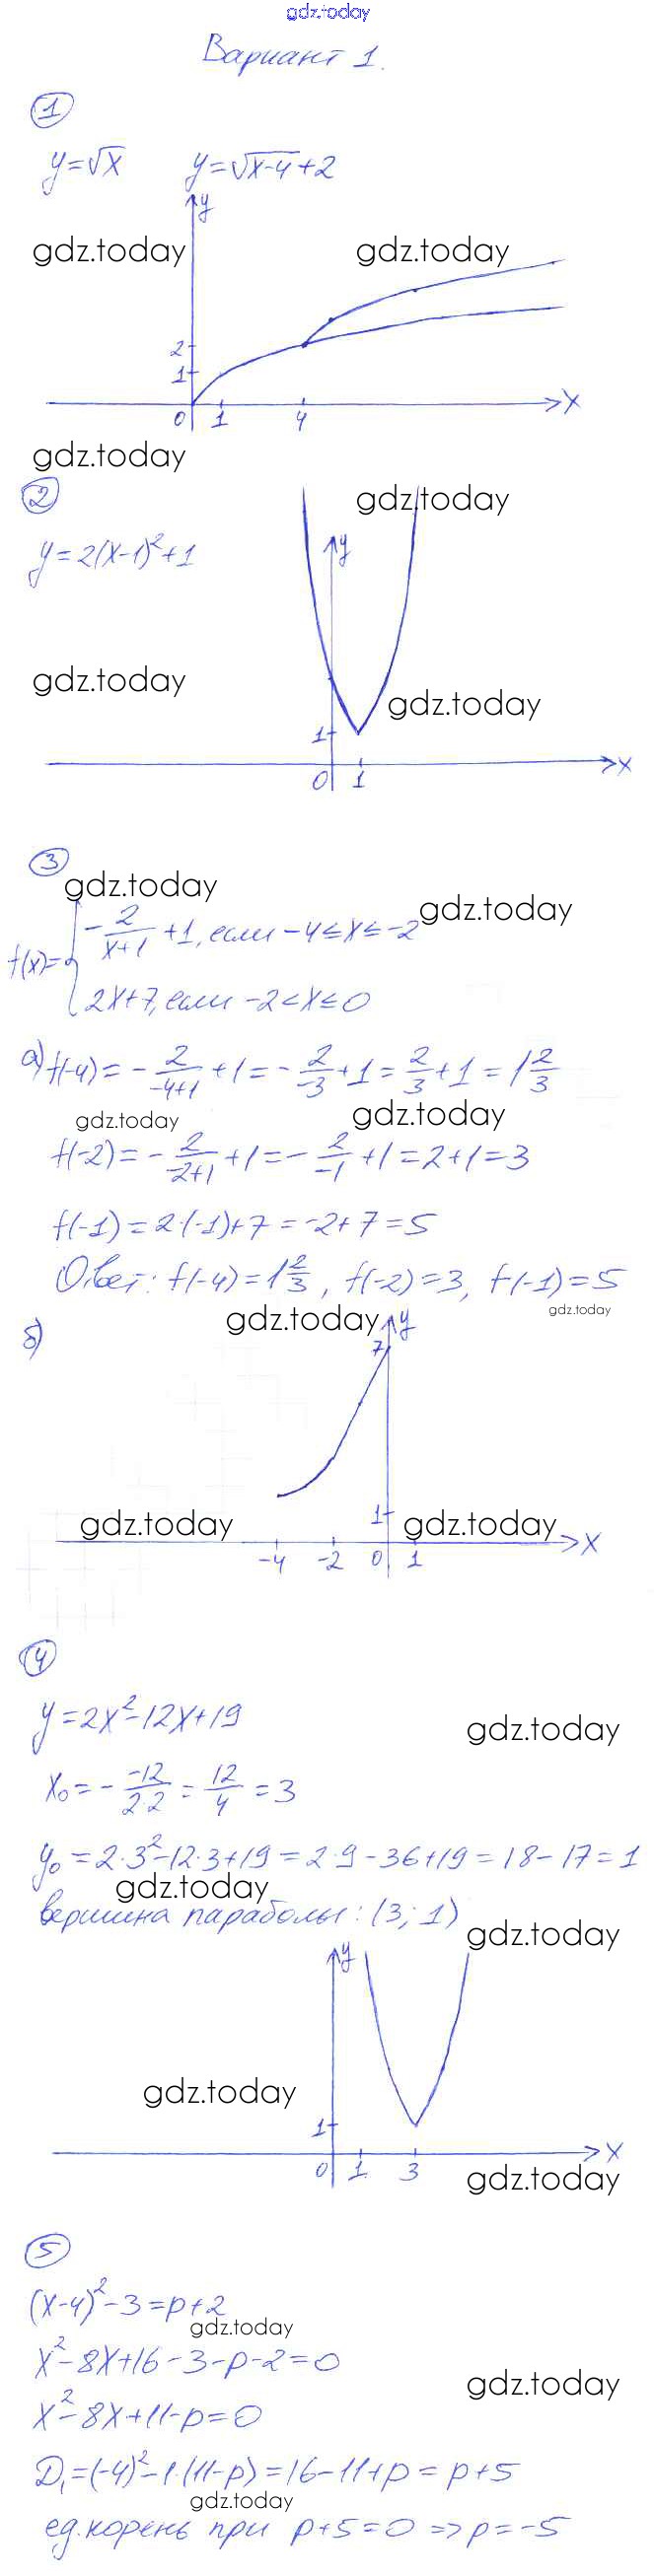 gdz.today
Вариант 1.
1
y=√x y=√x-4+2
y
gdz.today gdz.today
2
1
0 1 4 x
gdz.today
2
gdz.today
y=2(x-1)²+1
y
gdz.today
gdz.today
1
x
0 1
3
gdz.today
gdz.today
f(x)= { -2/(x+1) +1, если -4≤x≤-2
2x+7, если -2<x≤0
а) f(-4) = -2/(-4+1) +1 = -2/-3 +1 = 2/3 +1 = 1 2/3
gdz.today gdz.today
f(-2) = -2/(-2+1) +1 = -2/-1 +1 = 2+1 = 3
f(-1) = 2·(-1)+7 = -2+7 = 5
Ответ: f(-4)=1 2/3, f(-2)=3, f(-1)=5
gdz.today
gdz.today
б)
y
7
1
gdz.today gdz.today
x
-4 -2 0 1
4
y=2x²-12x+19
gdz.today
x₀ = - -12/2·2 = 12/4 = 3
y₀ = 2·3²-12·3+19 = 2·9-36+19 = 18-17 = 1
gdz.today
вершина параболы: (3; 1)
gdz.today
y
gdz.today
1
x
0 1 3
gdz.today
5
(x-4)²-3=p+2
gdz.today
x²-8x+16-3-p-2=0
gdz.today
x²-8x+11-p=0
D₁=(-4)²-1·(11-p)=16-11+p=p+5
gdz.today
ед. корень при p+5=0 => p=-5